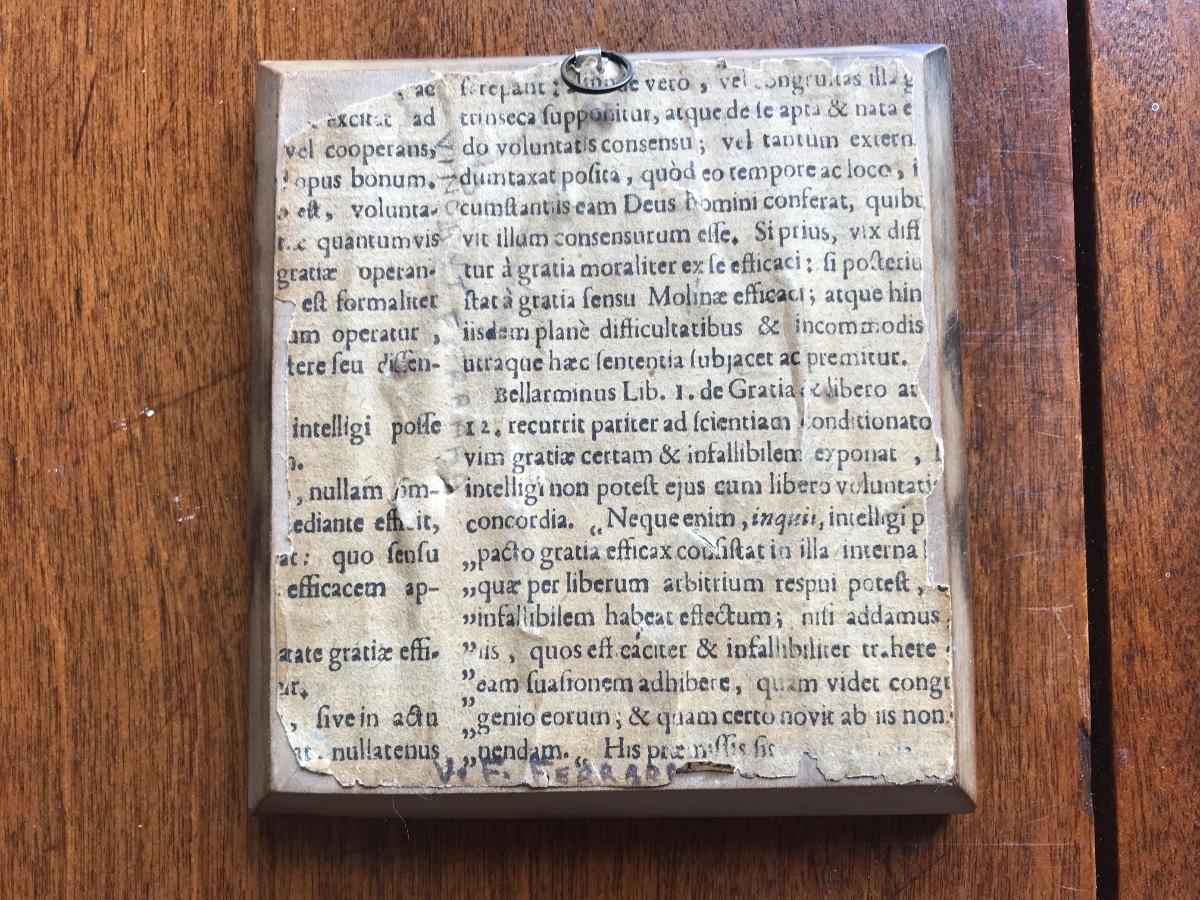 ac
excitat ad
vel cooperans,
opus bonum.
est, volunta-
quantumvis
gratiæ operan-
est formaliter
um operatur,
tere seu dissen-
intelligi posse
, nullam om-
ediante efficit,
at: quo sensu
efficacem ap-
atate gratiæ effi-
ur.
, sive in actu
at. nullatenus
verò, vel congruitas illa
trinseca supponitur, atque de se apta & nata e
do voluntatis consensu; vel tantum extern
dumtaxat posita, quòd eo tempore ac loco, i
cumstantiis eam Deus homini conferat, quibu
vit illum consensurum esse. Si prius, vix diff
tur à gratia moraliter ex se efficaci; si posteriu
stat à gratia sensu Molinæ efficaci; atque hin
iisdem planè difficultatibus & incommodis
utraque hæc sententia subjacet ac premitur.
Bellarminus Lib. 1. de Gratia & libero ar
12. recurrit pariter ad scientiam conditionato
vim gratiæ certam & infallibilem exponat,
intelligi non potest ejus cum libero voluntati
concordia. „Neque enim, inquit, intelligi p
„pacto gratia efficax consistat in illa interna
„quæ per liberum arbitrium respui potest,
„infallibilem habeat effectum; nisi addamus
„iis, quos efficaciter & infallibiliter trahere
„eam suasionem adhibere, quam videt congr
„genio eorum; & quam certo novit ab iis non
„nendam. „ His præmissis sit
V. F. FERRARI